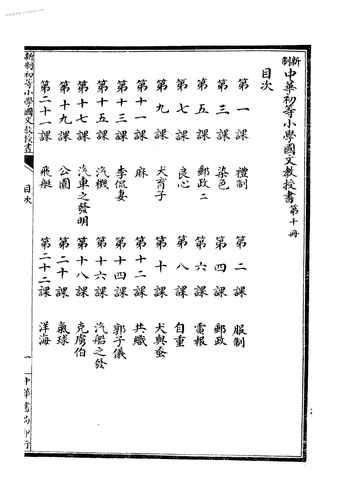 新制中華初等小學國文教授書 第十冊
目次
第一課 禮制 第二課 服制
第三課 染色 第四課 郵政
第五課 郵政二 第六課 電報
第七課 良心 第八課 自重
第九課 犬育子 第十課 犬與蚕
第十一課 麻 第十二課 共織
第十三課 李侃妻 第十四課 郭子儀
第十五課 汽機 第十六課 汽船之發
第十七課 汽車之發明 第十八課 克虜伯
第十九課 公園 第二十課 氣球
第二十一課 飛艇 第二十二課 洋海
新制初等小學國文教授書
目次
一
中華書局印行